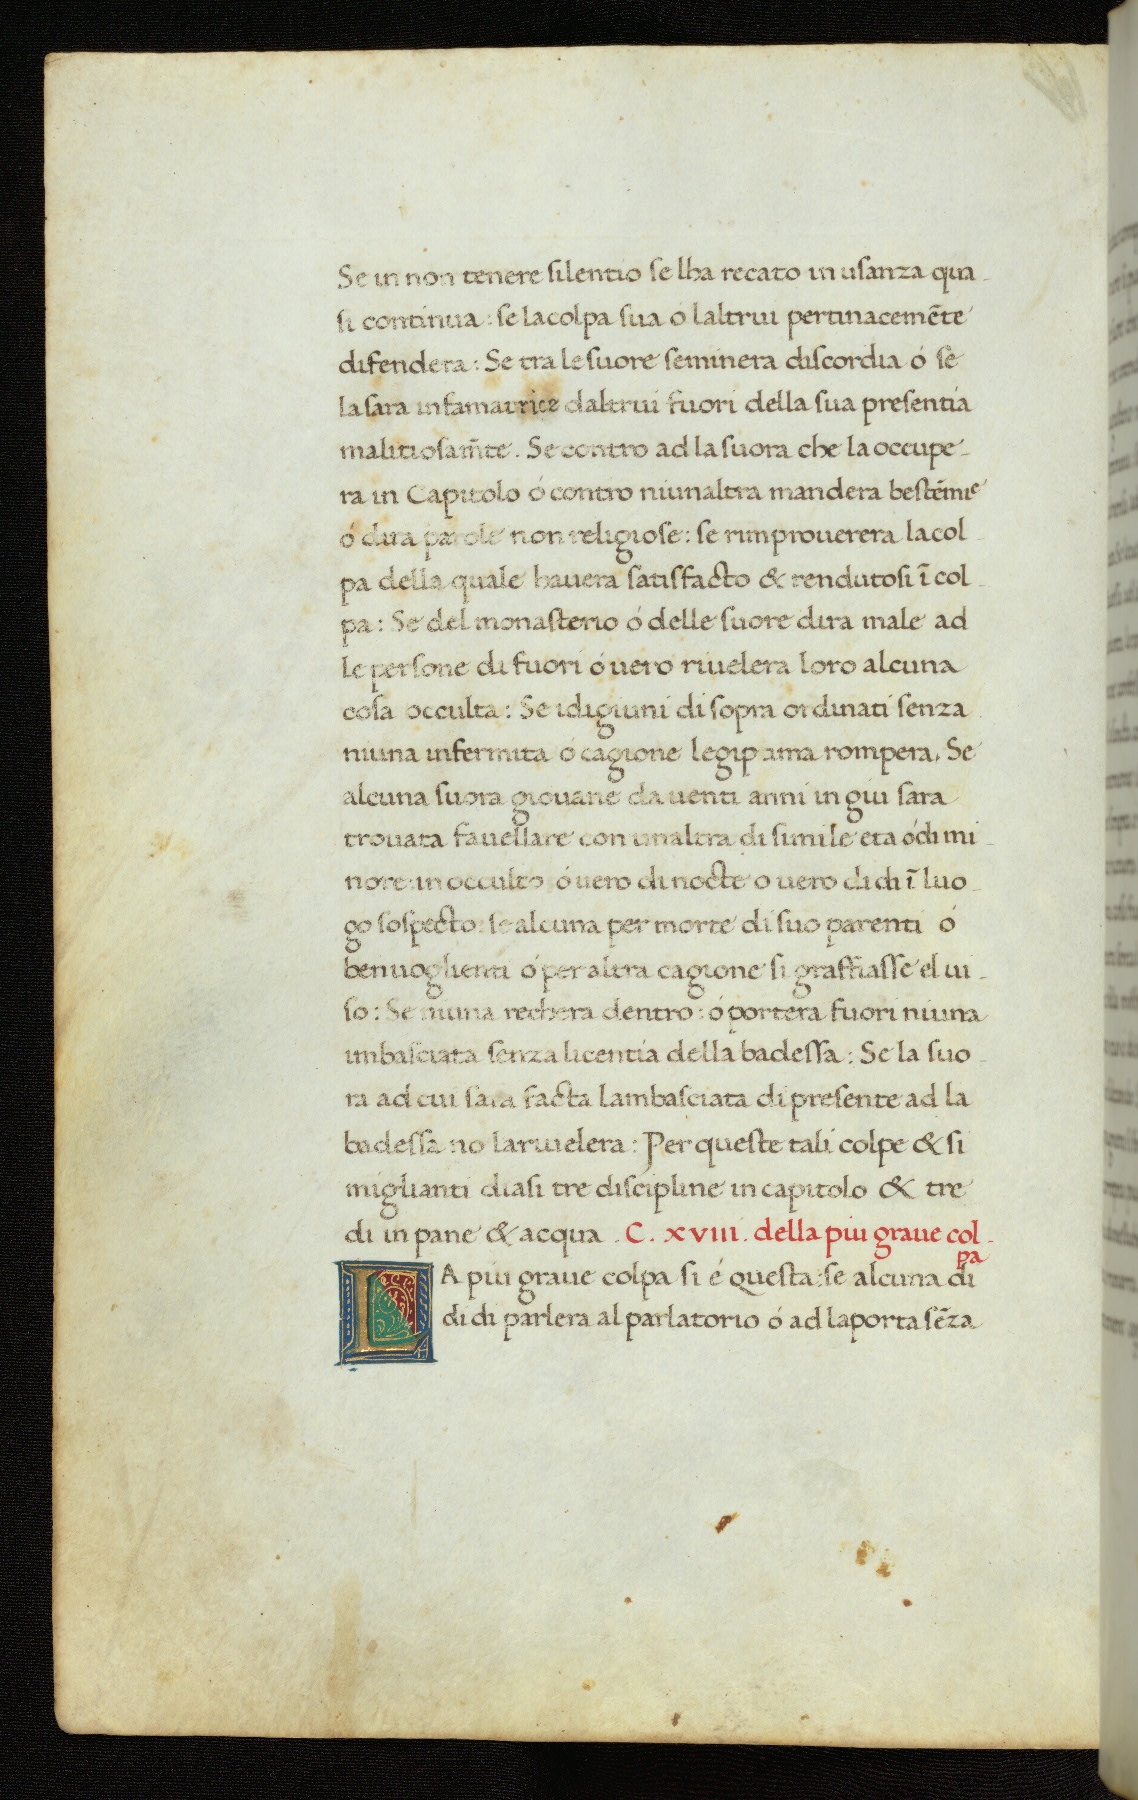 Se in non tenere silentio se lha recato in usanza qua-
si continua: se lacolpa sua o laltrui pertinacemēte
difendera: Se tra le suore seminera discordia ó se
la sara infamatrice daltrui fuori della sua presentia
malitiosam̄te. Se contro ad la suora che la occupe-
ra in Capitolo ó contro niunaltra mandera bestēmie
ó dira parole non religiose: se rimprouerera lacol-
pa della quale hauera satisfacto & rendutosi ī col-
pa: Se del monasterio ó delle suore dira male ad
le persone di fuori ó uero riuelera loro alcuna
cosa occulta: Se idigiuni di sopra ordinati senza
niuna infermita ó cagione legiptima rompera. Se
alcuna suora giouane da uenti anni in giu sara
trouata fauellare con unaltra di simile eta ó di mi-
nore: in occulto ó uero di nocte o uero di di ī luo-
go sospecto: se alcuna per morte di suo parenti ó
benuoglienti ó per altra cagione si graffiasse el ui-
so: Se niuna rechera dentro: ó portera fuori niuna
imbasciata senza licentia della badessa: Se la suo-
ra ad cui sara facta lambasciata di presente ad la
badessa no la riuelera: Per queste tali colpe & si
miglianti diasi tre discipline in capitolo & tre
di in pane & acqua. C. xviii. della piu graue col-
pa
LA piu graue colpa si é questa: se alcuna di
di di parlera al parlatorio ó ad laporta sēza